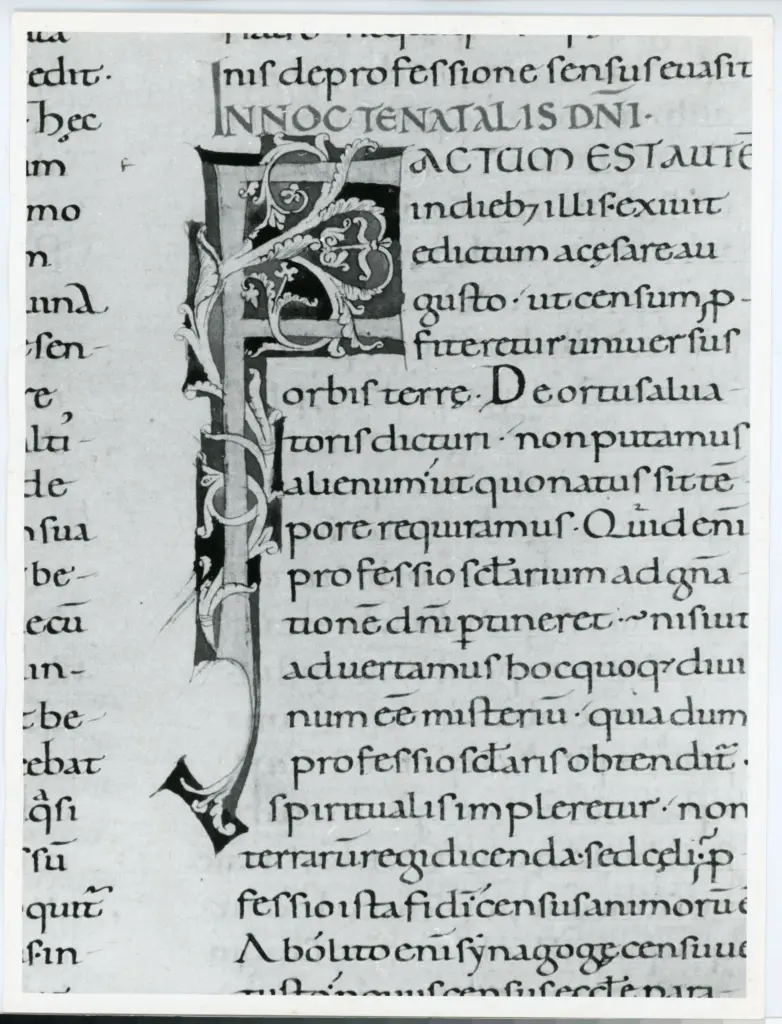 ita
edit·
·hęc
um
mo
m
uină
sen-
re
alti-
de
sua
be-
ecū
in-
be-
ebat
q̊si
sū
quit̄
sin
nis de professione sensus euasit
IN NOCTE NATALIS DN̄I·
FACTUM EST AUTĒ
in dieb; illis exiuit
edictum a cęsare au
gusto· ut censum ꝓ-
fiteretur uniuersus
orbis terrę· De ortu salua
toris dicturi· non putamus
alienum ut quo natus sit tē
pore requiramus· Quid enī
professio sclarium ad gn̄a
tionē dn̄i ꝑtineret·~ nisi ut
aduertamus hoc quoq; diui
num eē misteriū· quia dum
professio sclaris obtendit̄·
spiritualis impleretur· non
terrarū regi dicenda· sed cęli· ꝓ
fessio ista fidī censusanimorū e
Abolito enī synagogę censu ue